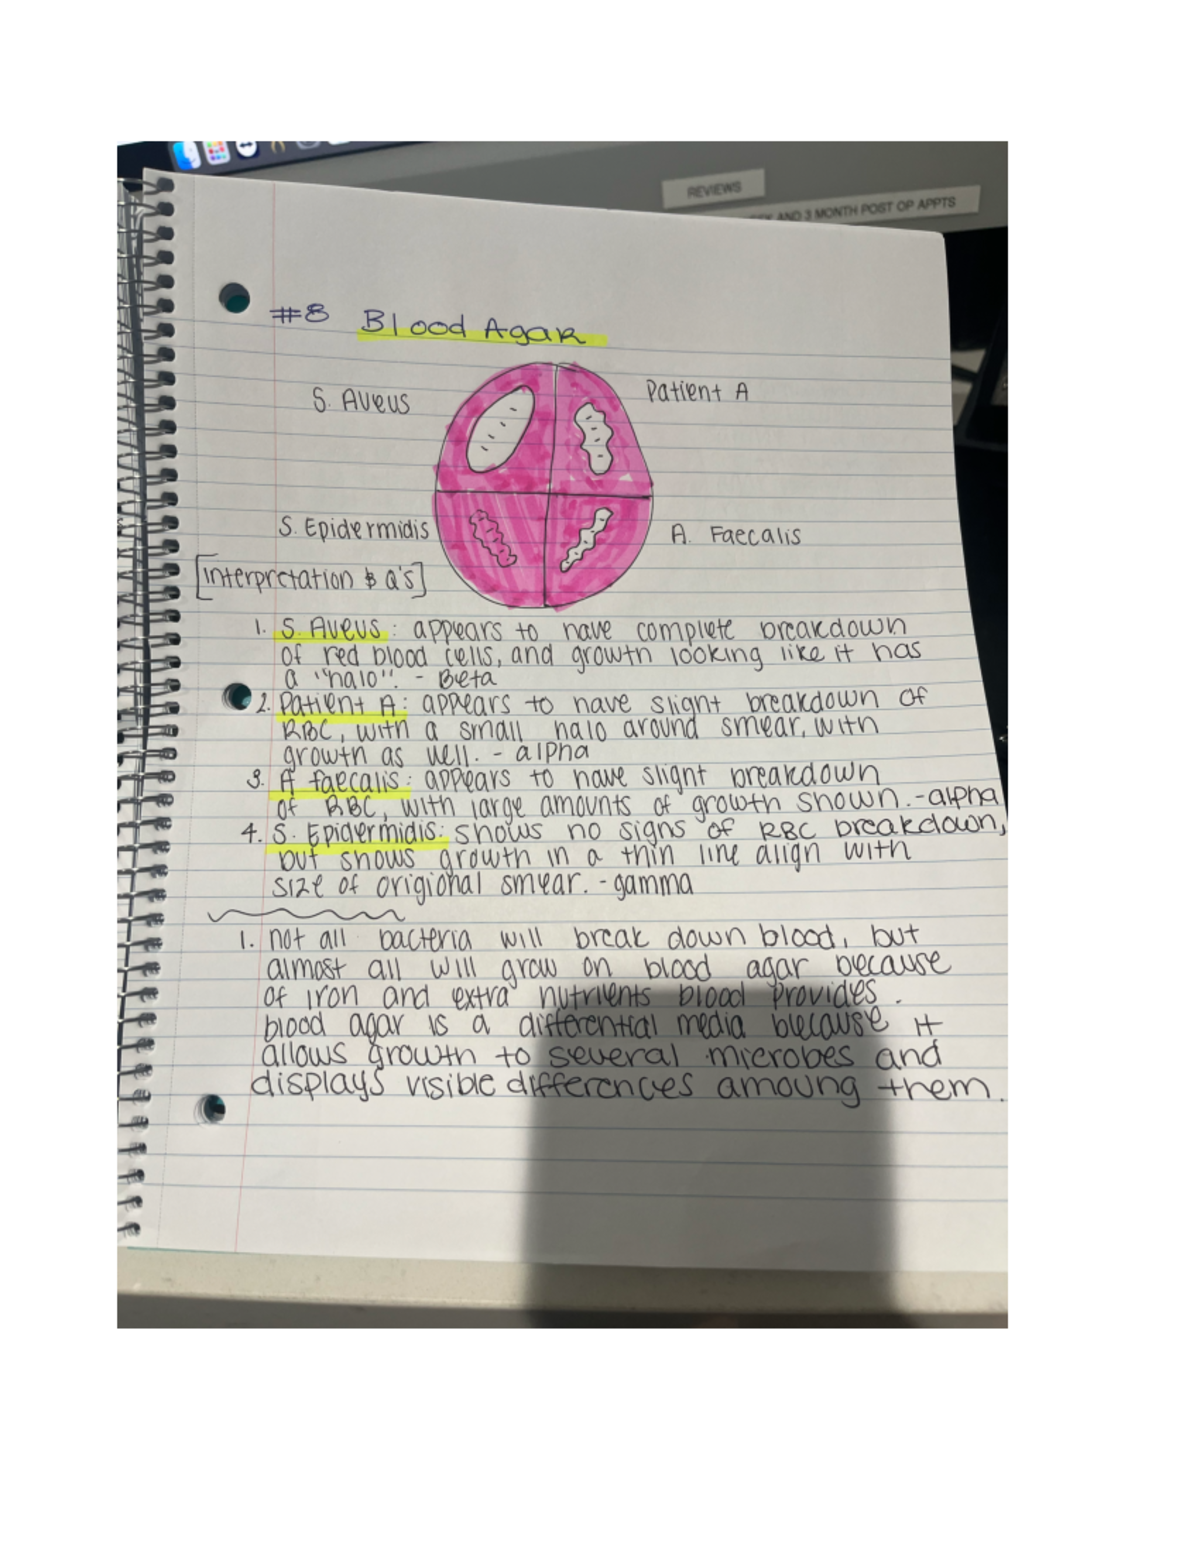 REVIEWS
AND 3 MONTH POST OP APPTS
#8 Blood Agar
S. Aueus
Patient A
S. Epidermidis
A. Faecalis
[Interpretation & Q's]
1. S. Aueus: appears to have complete breakdown
of red blood cells, and growth looking like it has
a "halo". - Beta
2. Patient A: appears to have slight breakdown of
RBC, with a small halo around smear, with
growth as well. - alpha
3. A faecalis: appears to have slight breakdown
of RBC, with large amounts of growth shown. - alpha
4. S. Epidermidis: shows no signs of RBC breakdown,
but shows growth in a thin line align with
size of origional smear. - gamma
1. not all bacteria will break down blood, but
almost all will grow on blood agar because
of iron and extra nutrients blood provides.
blood agar is a differential media blecause it
allows growth to several microbes and
displays visible differences amoung them.